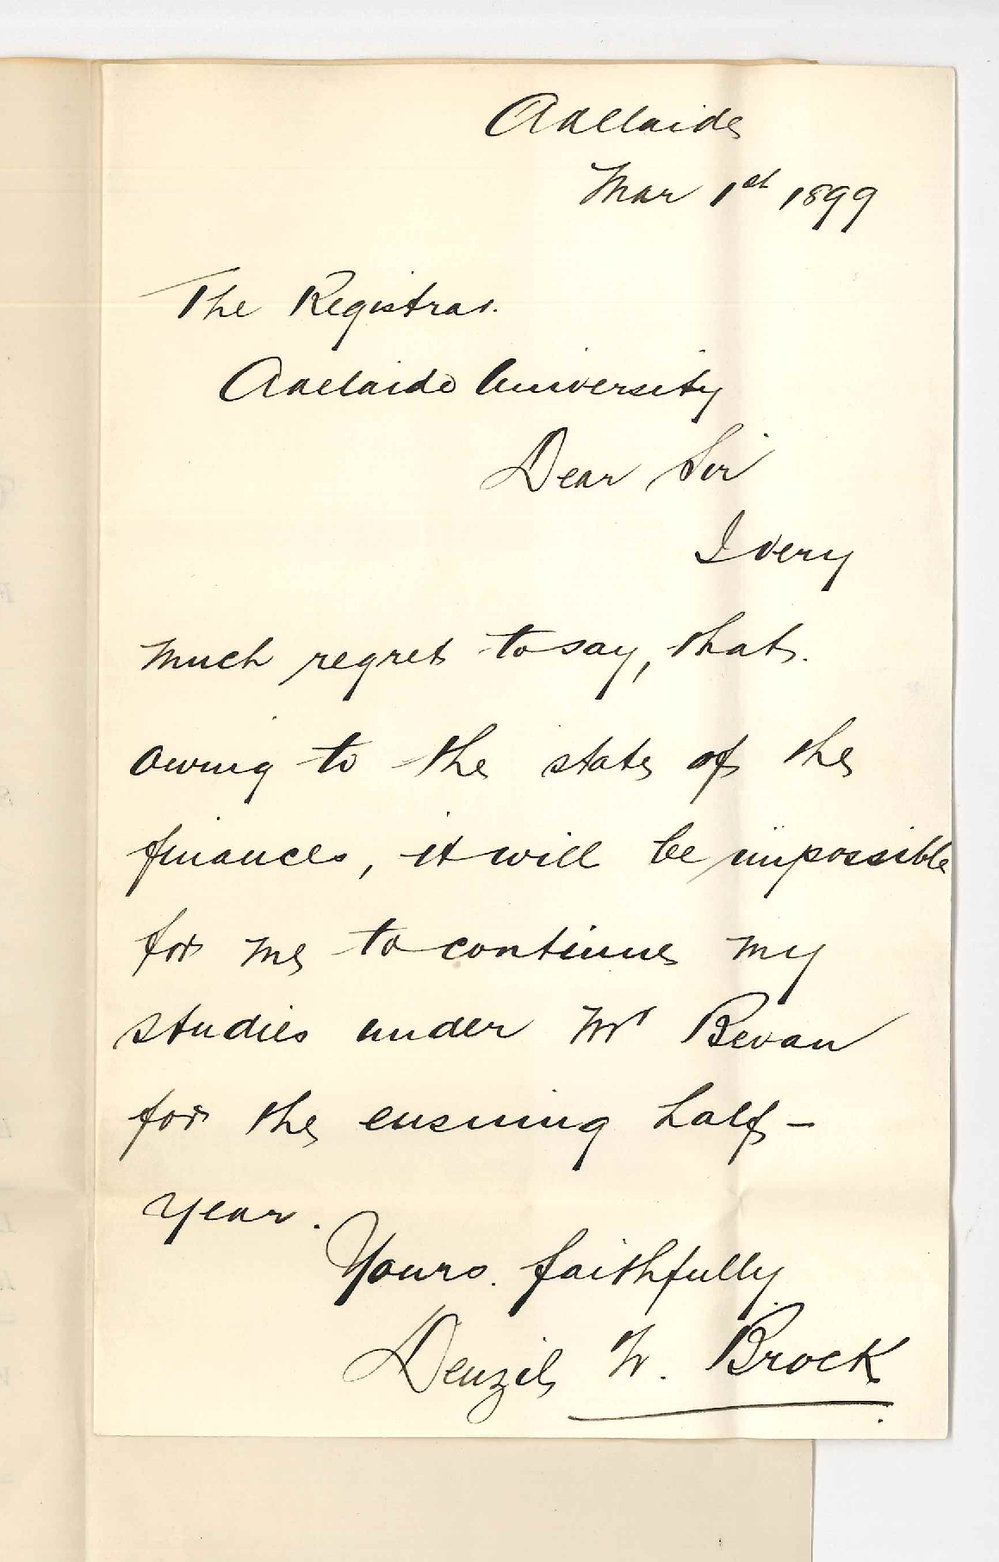 Adelaide
Mar 1st 1899
The Registrar.
Adelaide University
Dear Sir
I very
much regret to say, that.
owing to the state of the
finances, it will be impossible
for me to continue my
studies under Mr Bevan
for the ensuing half-
year.
Yours. faithfully
Denzil W. Brock.